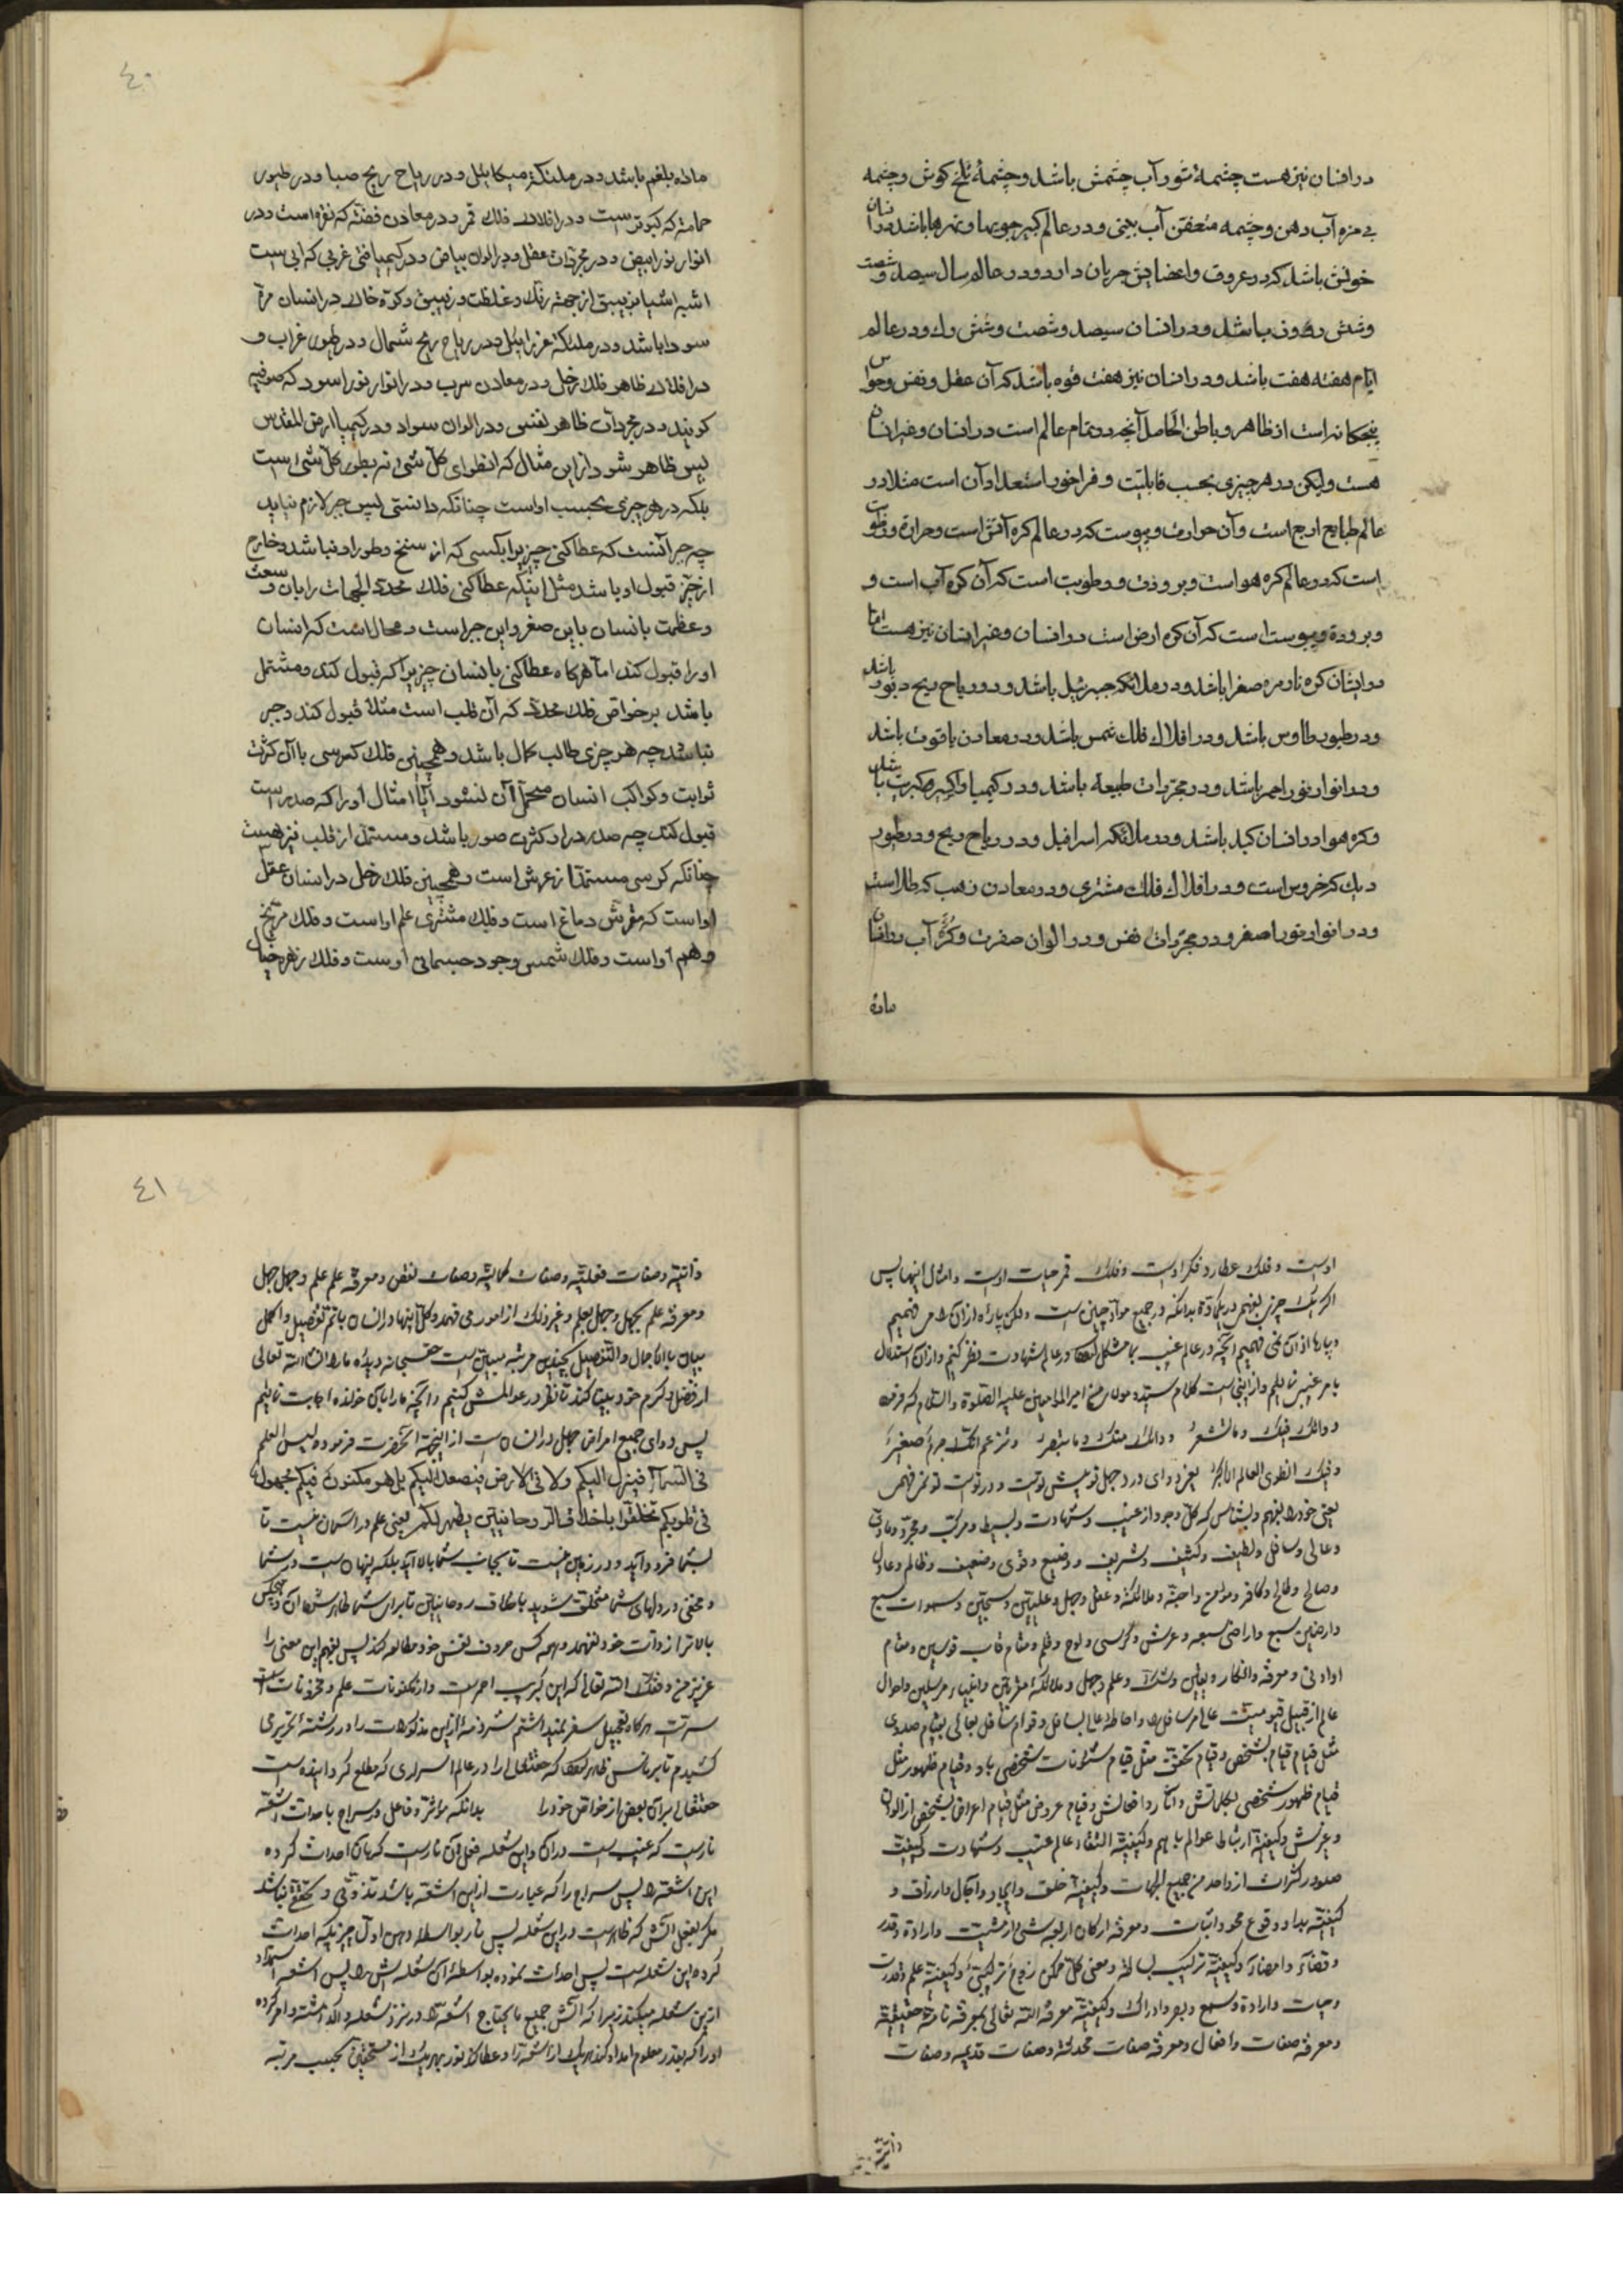 در انسان نیز هست چشمهٔ شور آب چشمش باشد و چشمهٔ تلخ کوش و چشمه
بی مزه آب دهن و چشمه متعفن آب بینی و در عالم کبیر جویها و نهرها باشد و در انسان
خونش باشد که در عروق و اعضایش جریان دارد و در عالم سال سیصد و شصت
و شش روزون باشد و در انسان سیصد و شصت و شش رك و در عالم
ایام هفته هفت باشد و در انسان نیز هفت قوه باشد که آن عقل و نفس و حواس
پنجکانه است از ظاهر و باطن الحاصل آنچه در تمام عالم است در انسان و غیر انسان
هست ولیکن در هر چیزی بحسب قابلیت و فراخور استعداد آن است مثلا در
عالم طبایع اربع است و آن حرارت و یبوست که در عالم کره آتش است و حرارة و رطوبت
است که در عالم کره هوا است و برودت و رطوبت است که آن کره آب است و
و برودة و یبوست است که آن کره ارض است در انسان و غیر انسان نیز هست اما
در ایشان کره نار مره صفرا باشد و در ملائکه جبرئیل باشد و در ریاح ریح دبور باشد
و در طیور طاوس باشد و در افلاك فلك شمس باشد و در معادن یاقوت باشد
و در انوار نور احمر باشد و در مجردات طبیعة باشد و در کیمیا و اکسیر کبریت باشد
و کره هوا در انسان کبد باشد و در ملائکه اسرافیل و در ریاح ریح و در طیور
دیك که خروس است و در افلاك فلك مشتری و در معادن ذهب که طلا است
و در انوار نور اصفر و در مجردات نفس و در الوان صفرت و کرهٔ آب در انسان
ماده
٤٠
ماده بلغم باشد و در ملئکة میکائیل و در ریاح ریح صبا و در طیور
حمامة که کبوتر است و در افلاك فلك قمر و در معادن فضّه که نقره است و در
انوار نور ابیض و در مجردات عقل و در الوان بیاض و در کیمیا فتی غربی که ابی ست
اشبه اشیا بزیبق از جهة رنك و غلظت و زیبق و کرّه خاك در انسان مرّة
سودا باشد و در ملئکة عزرائیل و در ریاح ریح شمال و در طیور غراب و
در افلاك ظاهر فلك زحل و در معادن سرب و در انوار نور اسود که صوفیه
کویند و در مجردات ظاهر نفسی و در الوان سواد و در کیمیا ارض المقدس
پس ظاهر شود از این مثال که انطوای کلّ شئ نه بطور کلّ شئ است
بلکه در هر چیزی بحسب اواست چنانکه دانستی پس جبر لازم نیاید
چه جبر آنست که عطا کنی چیزیرا بکسی که از سنخ و طور او نباشد و خارج
از حیّز قبول او باشد مثل اینکه عطا کنی فلك محدد الجهات را بان وسعت
و عظمت بانسان باین صغر و این جبر است و محال است که انسان
او را قبول کند اما هرکاه عطا کنی بانسان چیزیرا که قبول کند و مشتمل
باشد بر خواص فلك محدّد که آن قلب است مثلا قبول کند و جبر
نباشد چه هر چیزی طالب کمال باشد و همچنین فلك کرسی با آن کثرت
ثوابت و کواکب انسان متحمّل آن نشود امّا امثال او را که صدر است
قبول کند چه صدر در او کثرت صور باشد و مستمد از قلب نیز هست
چنانکه کرسی مستمدّ از عرش است و همچنین فلك زحل در انسان عقل
اواست که مقرش دماغ است و فلك مشتری علم اواست و فلك مرّیخ
وهم اواست و فلك شمس وجود جسمانی اوست و فلك زهره خیال
اوست و فلك عطارد فکر اوست و فلك قمر حیات اوست و امثال اینها پس
اکر یك چیزی بفهمی در یکمادّة بدانکه در جمیع موادّ چنین است ولکن پاره از آن را می فهمیم
و پاره از آن نمی فهمیم آنچه در عالم غیب بما مشکل در عالم شهادت نظر کنیم و از آن استدلال
بامر غیبی نمائیم و از اینجاست کلام سید و مولای من امیر المؤمنین علیه الصلوة والسلام که فرمود
دوائك فیك و ما تشعرُ ودائك منك و ما تبصرُ وتزعم انك جرم صغیر
وفیك انطوی العالم الاکبر یعنی دوای درد جهل تو پیش توست و درد توست تو نمی فهمی
یعنی خود را بفهم و بشناس که کلّ وجود از غیب و شهادت و بسیط و مرکب و مجرّد و مادّی
و عالی و سافل و لطیف و کثیف و شریف و وضیع و قوی و ضعیف و ظالم و عادل
و صالح و طالح و کافر و مؤمن و اجنّه و ملائکة و عقل و جهل و علیّین و سجّین و سموات سبع
و ارضین سبع و اراضی سبعه و عرش و کرسی و لوح و قلم و مقام قاب قوسین و مقام
او ادنی و معرفه و انکار و یقین و شك و علم و جهل و ملائکهٔ مقربین و انبیاء مرسلین و احوال
عالم از قبیل قیومیّت عالی مر سافل را و احاطه عالی بسافل و قوام سافل بعالی بقیام صدوری
مثل قیام قیام بشخص و قیام تحقق مثل قیام شئونات شخصی باو و قیام ظهور مثل
قیام ظهور شخصی بکلامش و آثار و افعالش و قیام عروض مثل قیام اعراض بشخص از الوان
و غیرش و کیفیة ارتباط عوالم با هم و کیفیة التقاء عالم غیب و شهادت و کیفیت
صدور کثرات از واحد من جمیع الجهات و کیفیة خلق و ایجاد و آجال و ارزاق و
کیفیة بداء و وقوع محو و اثبات و معرفه ارکان اربعه شئ از مشیت و ارادة و قدر
و قضاء و امضاء و کیفیة ترکیب بسائط و معنی کلّ ممکن زوج ترکیبی و کیفیة علم و قدرت
و حیات و ارادة و سمع و بصر و ادراك و کیفیة معرفة الله تعالی بمعرفه تامهٔ حقیقیة
و معرفه صفات و افعال و معرفه صفات محدثه و صفات قدیمه و صفات
ذاتیّه
٤١
ذاتیّه و صفات فعلیّه و صفات کمالیّه و صفات نقص و معرفهٔ علم علم و جهل جهل
و معرفهٔ علم بجهل و جهل بعلم و غیر ذلك از امور می فهمد و کلّ اینها در انسان باتم تفصیل و اکمل
بیان بالاجمال و التفصیل بچندین مرتبه مبیّن است حقسبحانه دیدهٔ ما را انشاءالله تعالی
از فضل و کرم خود بینا کند تا نظر در عوالمش کنیم و آنچه ما را باآن خوانده اجابت نمائیم
پس دوای جمیع امراض جهل در انسان است از اینجهة آنحضرت فرموده لیس العلم
فی السّماء فینزل الیکم ولا فی الارض فیصعد الیکم بل هو مکنون فیکم مجهول
فی قلوبکم تخلّقوا باخلاق الروحانیین یظهر لکم یعنی علم در آسمان نیست تا
بشما فرود آید و در زمین نیست تا بجانب شما بالا آید بلکه پنهان است در شما
و مخفی در دلهای شما متخلّق شوید باخلاق روحانیین تا برای شما ظاهر شود آن و هیچکس
بالاتر از ذات خود نفهمد و همه کس حروف نفس خود مطالعه کند پس بفهم این معنی را
عزیز من وفّقك الله تعالی که این کبریت احمرست و از مکنونات علم و مخزونات است
سرّت هرکاه تعجیل سفر نمیداشتم شرذمهٔ از این مذکورات را در رشتهٔ تحریر می
کشیدم تا بر ناس ظاهر که حقتعالی را در عالم اسراری که مطلع کردانیده است
حقتعالی بر آن بعضی از خواص خود را بدانکه مؤثر و فاعل و سراج باحداث اشعّه
نارست که غیب است در آن و این شعله فعل آن نارست که بآن احداث کرده
این اشعّه را پس سراج را که عبارت از این اشعّه باشد تذوّتی و تحققی نباشد
مگر بفعل آتش که ظاهرست در این شعله پس نار بواسطه دهن اول چیزیکه احداث
کرده این شعله است پس احداث نموده بواسطهٔ آن شعله اش را پس اشعّه استمداد
از این شعله میکند زیرا که آتش جمیع مایحتاج اشعّه را در نزد شعله واکذاشته و امر کرده
او را که بقدر معلوم امداد کند هر یك از اشعّه را و عطا کند نور بهر یك از مستحقین بحسب مرتبه